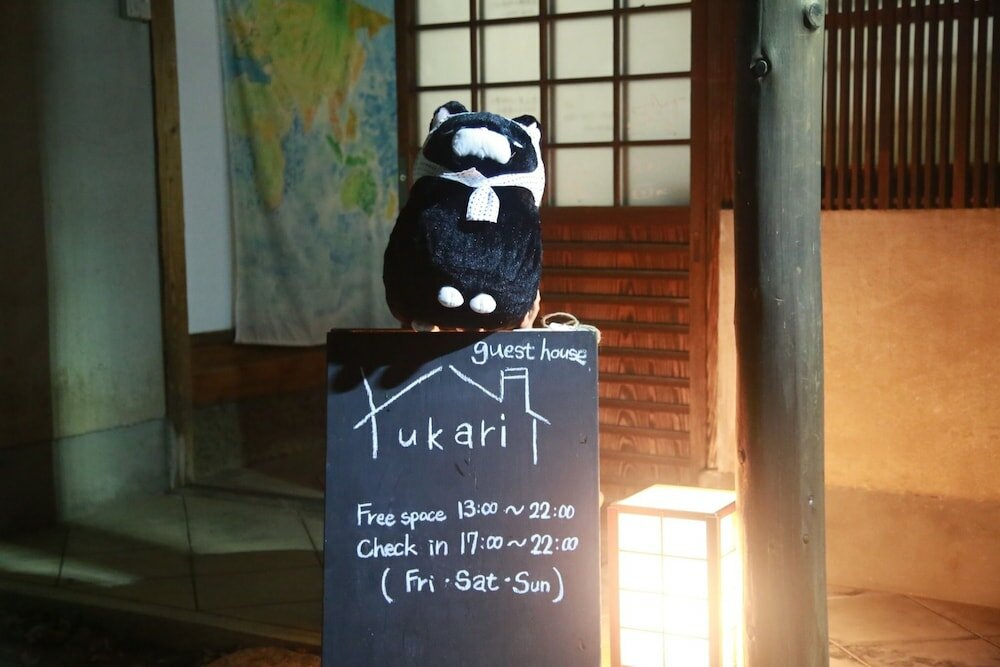 guest house
Yukari
Free space 13:00～22:00
Check in 17:00～22:00
(Fri・Sat・Sun)